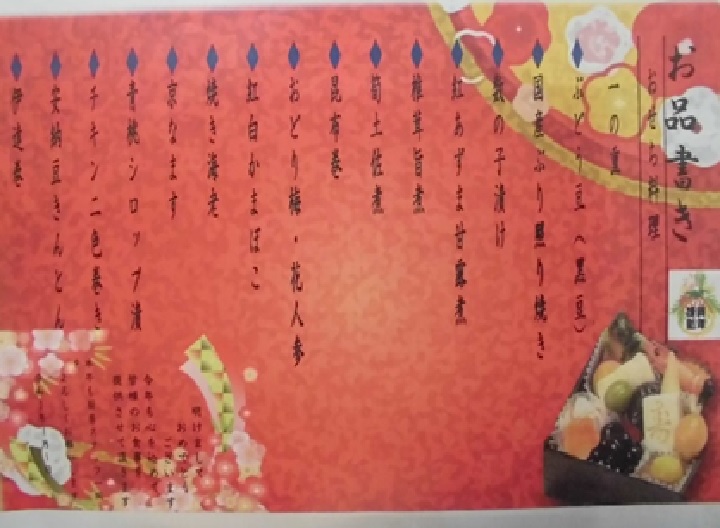 お品書き
おせち料理
一の重
ぶどう豆(黒豆)
国産ぶり照り焼き
数の子漬け
紅あずま甘露煮
椎茸旨煮
筍土佐煮
昆布巻
おどり梅・花人参
紅白かまぼこ
焼き海老
京なます
青桃シロップ漬
チキン二色巻き
安納豆きんとん
伊達巻
明けまして
おめでとう
ございます
今年も心を込めて
皆様のお食事を
提供させて頂きます